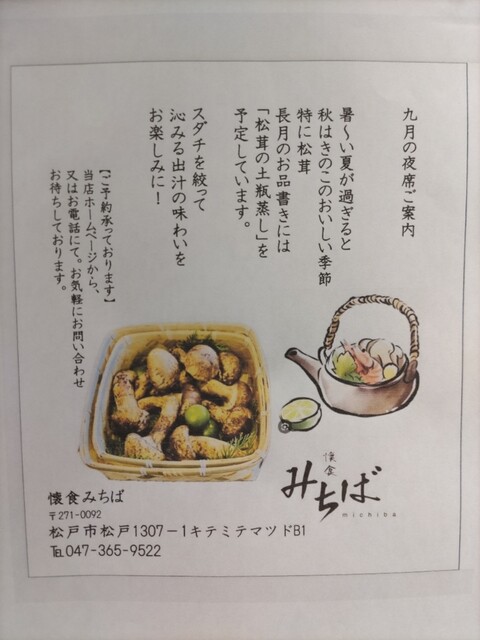 九月の夜席ご案内
暑〜い夏が過ぎると
秋はきのこのおいしい季節
特に松茸
長月のお品書きには
「松茸の土瓶蒸し」を
予定しています。
スダチを絞って
沁みる出汁の味わいを
お楽しみに！
【ご予約承っております】
当店ホームページから、
又はお電話にて。お気軽にお問い合わせ
お待ちしております。
懐食
みちば
michiba
懐食みちば
〒271-0092
松戸市松戸1307－1キテミテマツドB1
℡047-365-9522